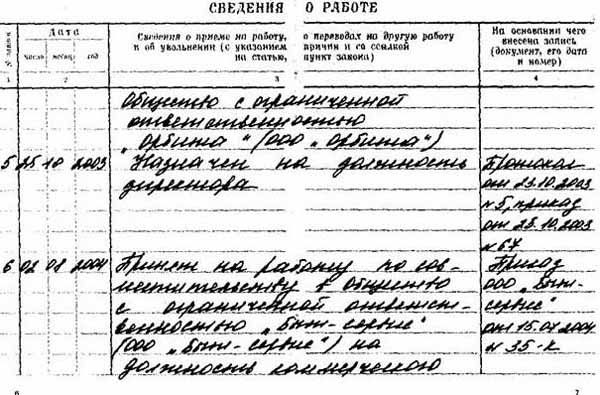 СВЕДЕНИЯ О РАБОТЕ
№ записи
Дата
число месяц год
Сведения о приеме на работу, о переводах на другую работу
и об увольнении (с указанием причин и со ссылкой
на статью, пункт закона)
На основании чего
внесена запись
(документ, его дата
и номер)
1 2 3 4
Общество с ограниченной
ответственностью
„Орбита“ (ООО „Орбита“)
5 25 10 2003 Назначен на должность
директора
Протокол
от 23.10.2003
№5, приказ
от 25.10.2003
№67
6 02 08 2004 Принят на работу по сов-
местительству в Общество
с ограниченной ответст-
венностью „Быт-сервис“
(ООО „Быт-сервис“) на
должность коммерческого
Приказ
ООО „Быт-
сервис“
от 15.07.2004
№35-к
6 7